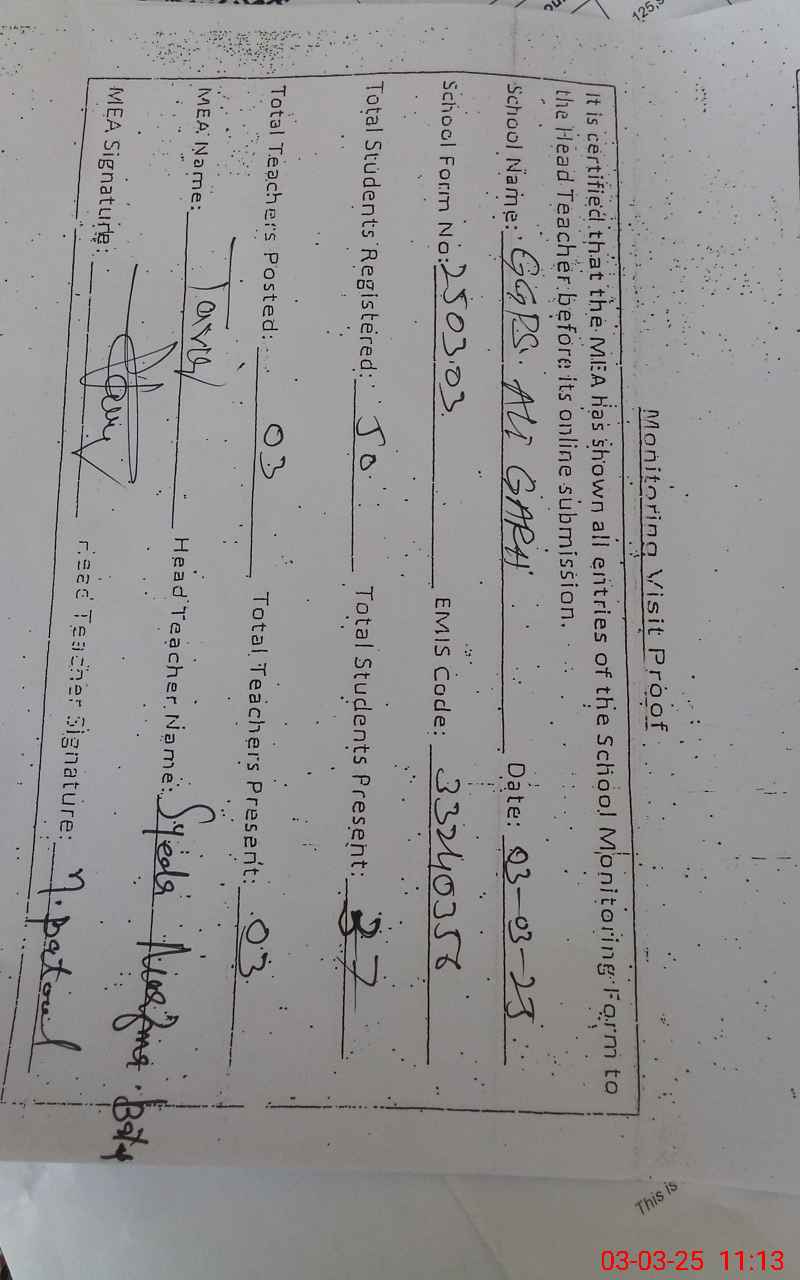 Monitoring Visit Proof
It is certified that the MEA has shown all entries of the School Monitoring Form to
the Head Teacher before its online submission.
School Name: GGPS. ALI GARH Date: 03-03-25
School Form No: 250303 EMIS Code: 33240356
Total Students Registered: 50 Total Students Present: 37
Total Teachers Posted: 03 Total Teachers Present: 03
MEA Name: Tariq Head Teacher Name: Syeda
MEA Signature: Head Teacher Signature: N. Batool
125,
This is
03-03-25 11:13